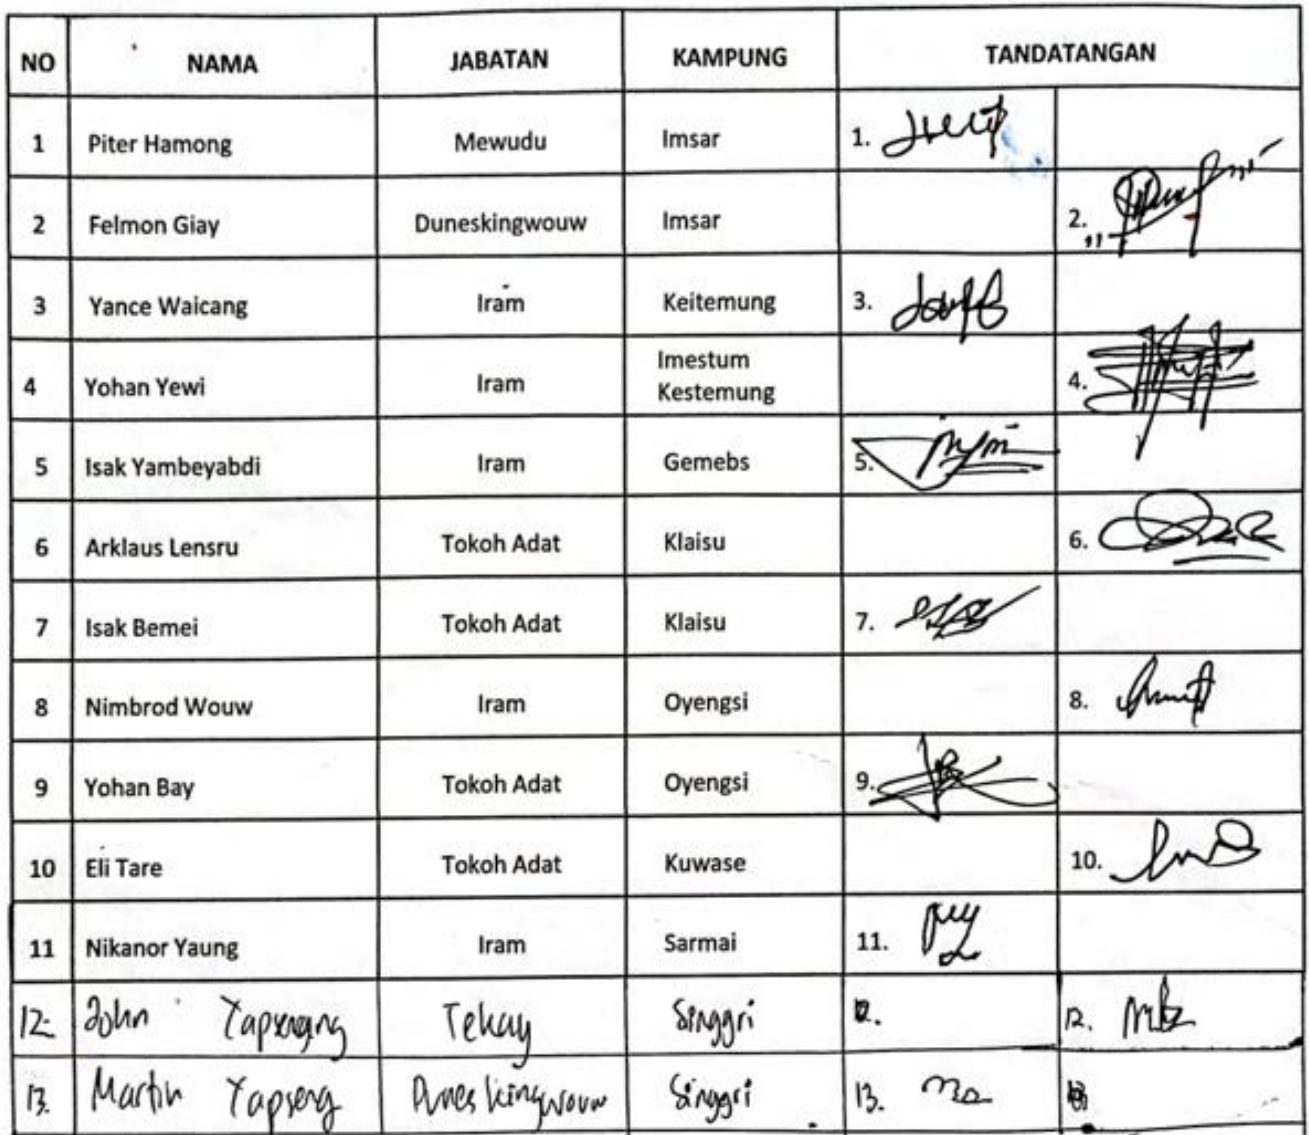 NO NAMA JABATAN KAMPUNG TANDATANGAN
1 Piter Hamong Mewudu Imsar 1.
2 Felmon Giay Duneskingwouw Imsar 2.
3 Yance Waicang Iram Keitemung 3.
4 Yohan Yewi Iram Imestum Kestemung 4.
5 Isak Yambeyabdi Iram Gemebs 5.
6 Arklaus Lensru Tokoh Adat Klaisu 6.
7 Isak Bemei Tokoh Adat Klaisu 7.
8 Nimbrod Wouw Iram Oyengsi 8.
9 Yohan Bay Tokoh Adat Oyengsi 9.
10 Eli Tare Tokoh Adat Kuwase 10.
11 Nikanor Yaung Iram Sarmai 11.
12. John Tekay Singgri 12.
13. Martin Yapseng Duneskingwouw Singgri 13.